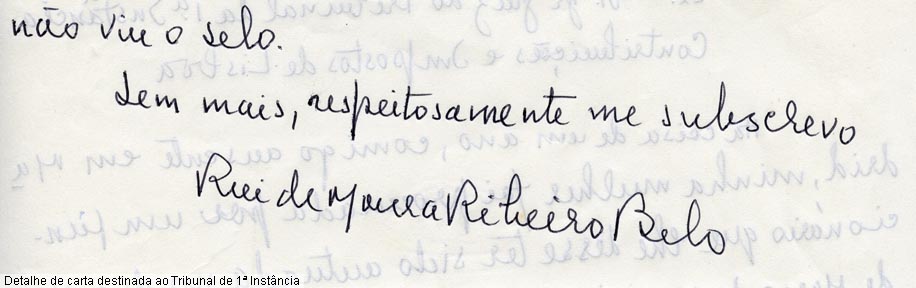 não viu o selo.
Sem mais, respeitosamente me subscrevo
Rui de Moura Ribeiro Belo
Detalhe de carta destinada ao Tribunal de 1ª Instância